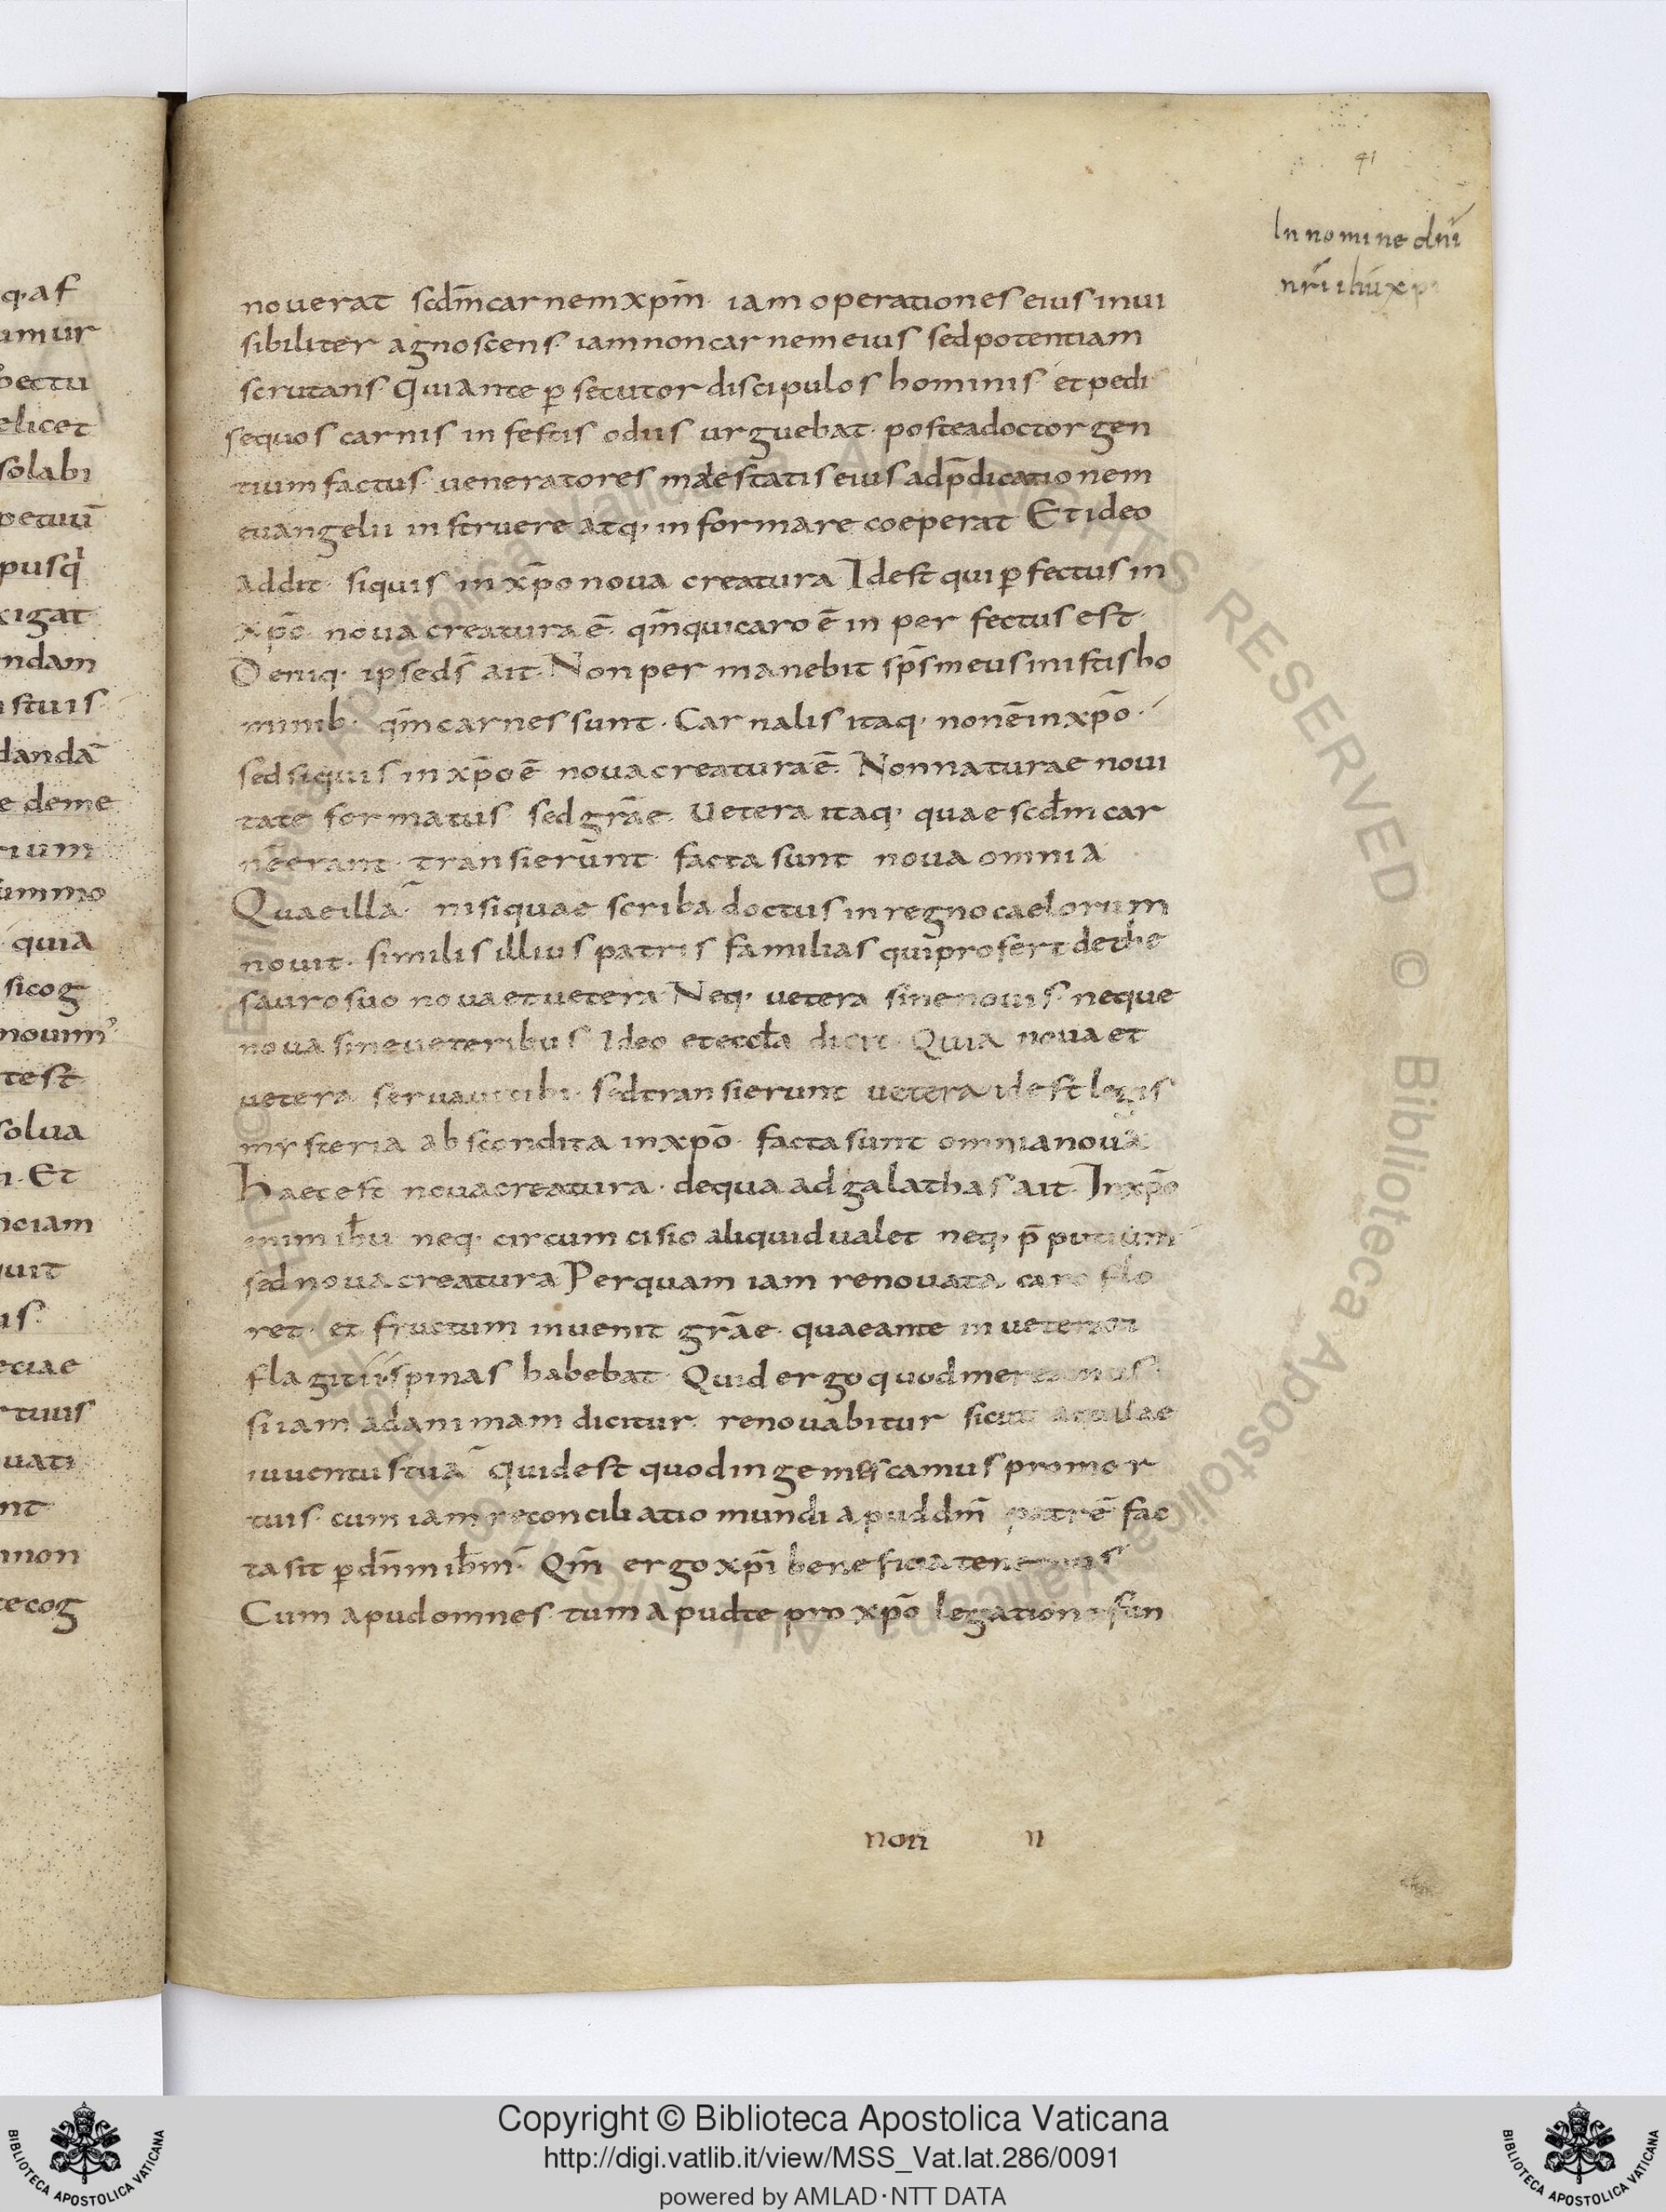 91
In nomine dni̅
nr̅i ihu̅ xpi
q· af
umur
pectu
elicet
solabi
petuu̅
pusq
xigat
ndam
stuis
danda̅
e deme
rium
ummo
quia
sicog
nouim᾽
test
solua
n. Et
nciam
quit
us.
etiae
rtuis
uati
nt
non
tecog
nouerat scdm̅ carnem xpm̅· iam operationes eius inui
sibiliter agnoscens· iam non carnem eius sed potentiam
scrutans· Qui ante p̲secutor discipulos hominis et pedi
sequos carnis infestis odiis urguebat· postea doctor gen
tium factus· ueneratores maiestatis eius ad p̅dicationem
euangelii instruere atq· informare coeperat Et ideo
addit· siquis in xp̅o noua creatura Idest qui p̲fectus in
xp̅o· noua creatura e̅· qm̅ qui caro e̅ inperfectus est·
Deniq· ipse ds̅ ait· Non permanebit sp̅s meus in istis ho
minib· qm̅ carnes sunt· Carnalis itaq· non e̅ in xp̅o·
sed siquis in xp̅o e̅ noua creatura e̅· Non naturae noui
tate formatus sed gra̅e· Uetera itaq· quae scdm̅ car
ne̅ erant· transierunt· facta sunt noua omnia
Quae illa· nisi quae scriba doctus in regno caelorum
nouit· similis illius patris familias qui profert de the
sauro suo noua et uetera Neq· uetera sine nouis· neque
noua sine ueteribus Ideo et eccl̅a dicit· Quia noua et
uetera seruaui tibi· Sed transierunt uetera idest legis
mysteria abscondita in xp̅o· facta sunt omnia noua
Haec est noua creatura· de qua ad galathas ait· In xp̅o
enim ihu̅ neq· circumcisio aliquid ualet neq· p̅putium
sed noua creatura Per quam iam renouata caro flo
ret· et fructum inuenit gra̅e· quae ante in ueteriori
flagitii spinas habebat· Quid ergo quod mereamus·
si iam ad animam dicitur· renouabitur sicut aquilae
iuuentus tua Quid est quod ingemiscamus pro mor
tuis· cum iam reconciliatio mundi apud dm̅ patre̅ fac
ta sit p̲ dn̅m ihm̅· Qm̅ ergo xpi̅ beneficia tenemus
Cum apud omnes· tum apud te pro xp̅o legatione fun
non n
Copyright © Biblioteca Apostolica Vaticana
http://digi.vatlib.it/view/MSS_Vat.lat.286/0091
powered by AMLAD·NTT DATA
BIBLIOTECA APOSTOLICA VATICANA
BIBLIOTECA APOSTOLICA VATICANA
© Biblioteca Apostolica Vaticana ALL RIGHTS RESERVED © Biblioteca Apostolica Vaticana ALL RIGHTS RESERVED